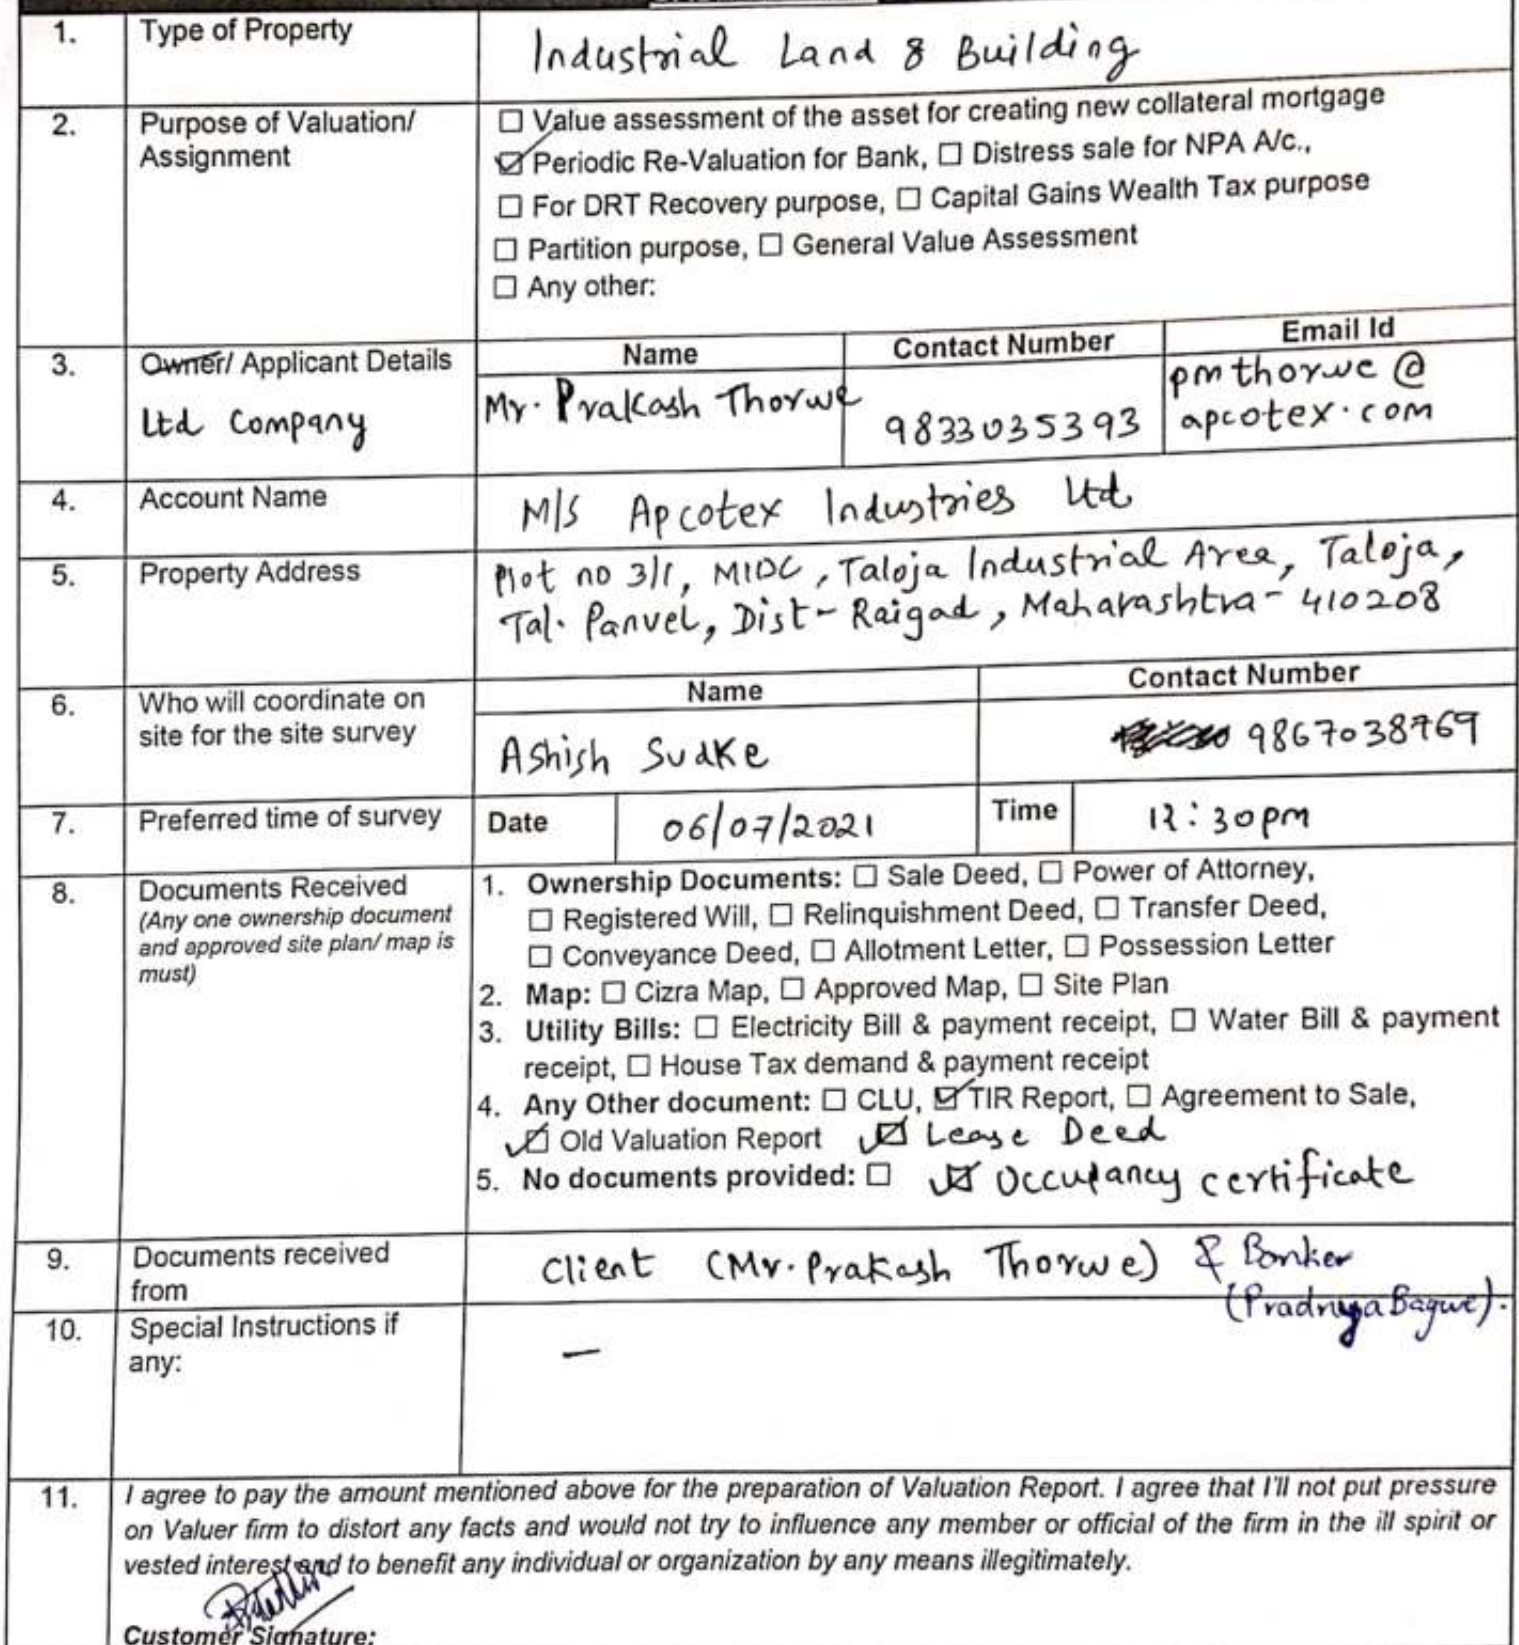 1. Type of Property Industrial Land & Building
2. Purpose of Valuation/ Assignment
☐ Value assessment of the asset for creating new collateral mortgage
☑ Periodic Re-Valuation for Bank, ☐ Distress sale for NPA A/c.,
☐ For DRT Recovery purpose, ☐ Capital Gains Wealth Tax purpose
☐ Partition purpose, ☐ General Value Assessment
☐ Any other:
3. Owner/ Applicant Details
Ltd Company
Name Contact Number Email Id
Mr. Prakash Thorwe 9833035393 pmthorwe@
apcotex.com
4. Account Name M/S Apcotex Industries Ltd
5. Property Address Plot no 3/1, MIDC, Taloja Industrial Area, Taloja,
Tal. Panvel, Dist- Raigad, Maharashtra- 410208
6. Who will coordinate on
site for the site survey
Name Contact Number
Ashish Sudke 9867038769
7. Preferred time of survey Date 06/07/2021 Time 12:30pm
8. Documents Received
(Any one ownership document
and approved site plan/ map is
must)
1. Ownership Documents: ☐ Sale Deed, ☐ Power of Attorney,
☐ Registered Will, ☐ Relinquishment Deed, ☐ Transfer Deed,
☐ Conveyance Deed, ☐ Allotment Letter, ☐ Possession Letter
2. Map: ☐ Cizra Map, ☐ Approved Map, ☐ Site Plan
3. Utility Bills: ☐ Electricity Bill & payment receipt, ☐ Water Bill & payment
receipt, ☐ House Tax demand & payment receipt
4. Any Other document: ☐ CLU, ☑ TIR Report, ☐ Agreement to Sale,
☑ Old Valuation Report ☑ Lease Deed
5. No documents provided: ☐ ☑ Occupancy certificate
9. Documents received
from
Client (Mr. Prakash Thorwe) & Banker
(Pradnya Bagwe).
10. Special Instructions if
any:
—
11. I agree to pay the amount mentioned above for the preparation of Valuation Report. I agree that I'll not put pressure
on Valuer firm to distort any facts and would not try to influence any member or official of the firm in the ill spirit or
vested interest and to benefit any individual or organization by any means illegitimately.
Customer Signature: